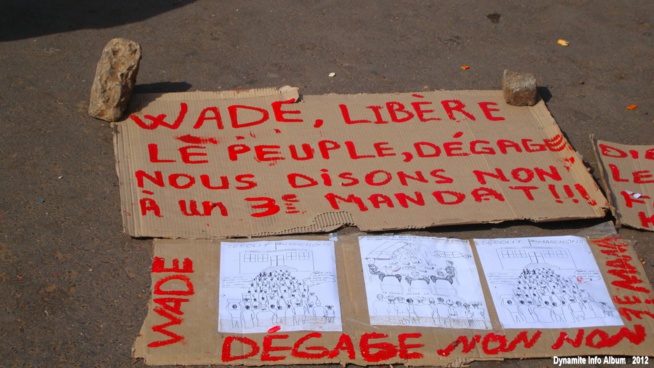 WADE, LIBÈRE
LE PEUPLE, DÉGAGE
NOUS DISONS NON
À UN 3E MANDAT!!!
DI
LE
WADE
DÉGAGE NON NON
3E MAN
Dynamite Info Album 2012